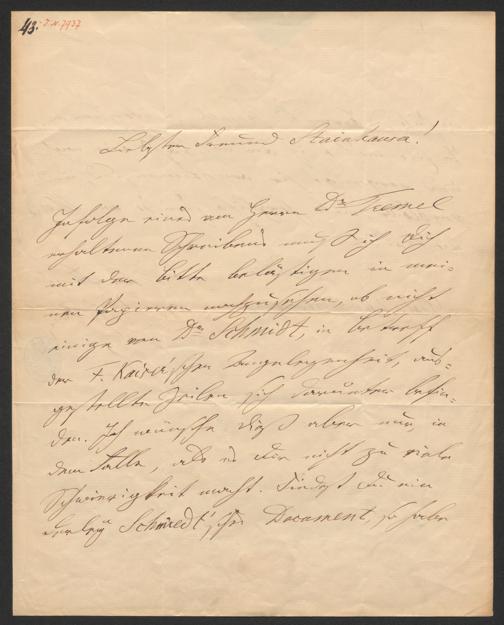 43. I.N. 7937
Liebster Freund Steinhauser!
Infolge eines von Herrn Dr Tremel
erhaltenen Schreibens muß ich Dich
mit der Bitte belästigen in mei-
nen Papieren nachzusehen, ob nicht
einige von Dr Schmidt, in betreff
der schen Angelegenheit, aus-
gestellte Zeilen sich darunter befin-
den. Ich wünsche dieß aber nur, in
dem Falle, als es Dir nicht zu viele
Schwierigkeit macht. Findest Du ein
Schmiedt'sches Document, so habe